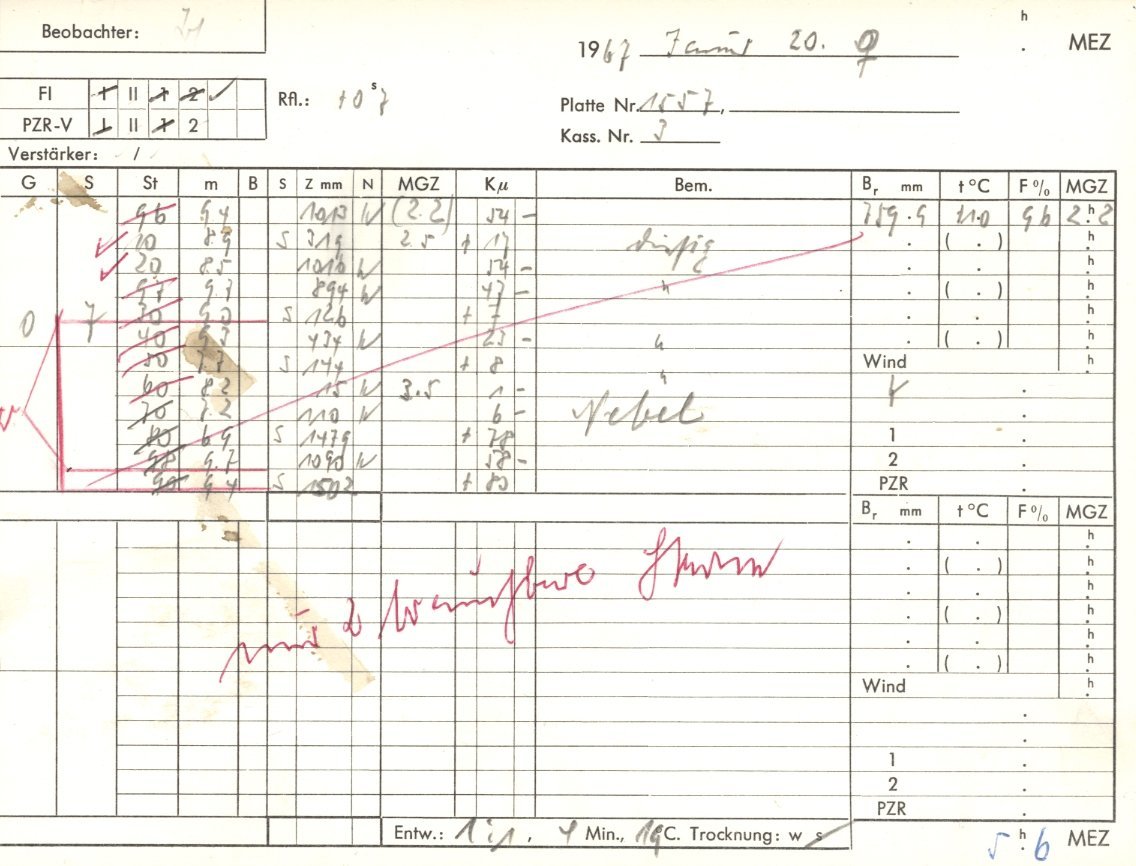 Beobachter:
1967 Januar 20. ♀ h . MEZ
FI I II 1 2 ✓
Rfl.: +0 s 7
Platte Nr. 1557,
PZR-V I II 1 2
Kass. Nr. 3
Verstärker: /
G S St m B S Z mm N MGZ Kμ Bem. Br mm t °C F% MGZ
96 9.4 1013 N (2.2) 54 - 759.9 11.0 96 2h.2
✓ 10 8.9 S 319 2.5 + 17 dunstig . ( . ) h.
✓ 20 8.5 1010 N 54 - . . h.
97 9.7 894 N 47 - " . ( . ) h.
0 7 30 9.0 S 126 + 7 . . h.
40 9.3 434 N 23 - " . ( . ) h.
50 7.7 S 144 + 8 Wind h.
60 8.2 15 N 3.5 1 - " .
70 7.2 110 N 6 - Nebel .
80 6.9 S 1479 + 78 1 .
98 9.7 1090 N 58 - 2 .
90 9.4 S 1502 + 80 PZR .
Br mm t °C F% MGZ
. . h.
. ( . ) h.
. . h.
nur 2 brauchbare Sterne
. ( . ) h.
. . h.
. ( . ) h.
Wind h.
.
.
1 .
2 .
PZR .
Entw.: 1:1, 4 Min., 19 C. Trocknung: w s
5 h. 6 MEZ